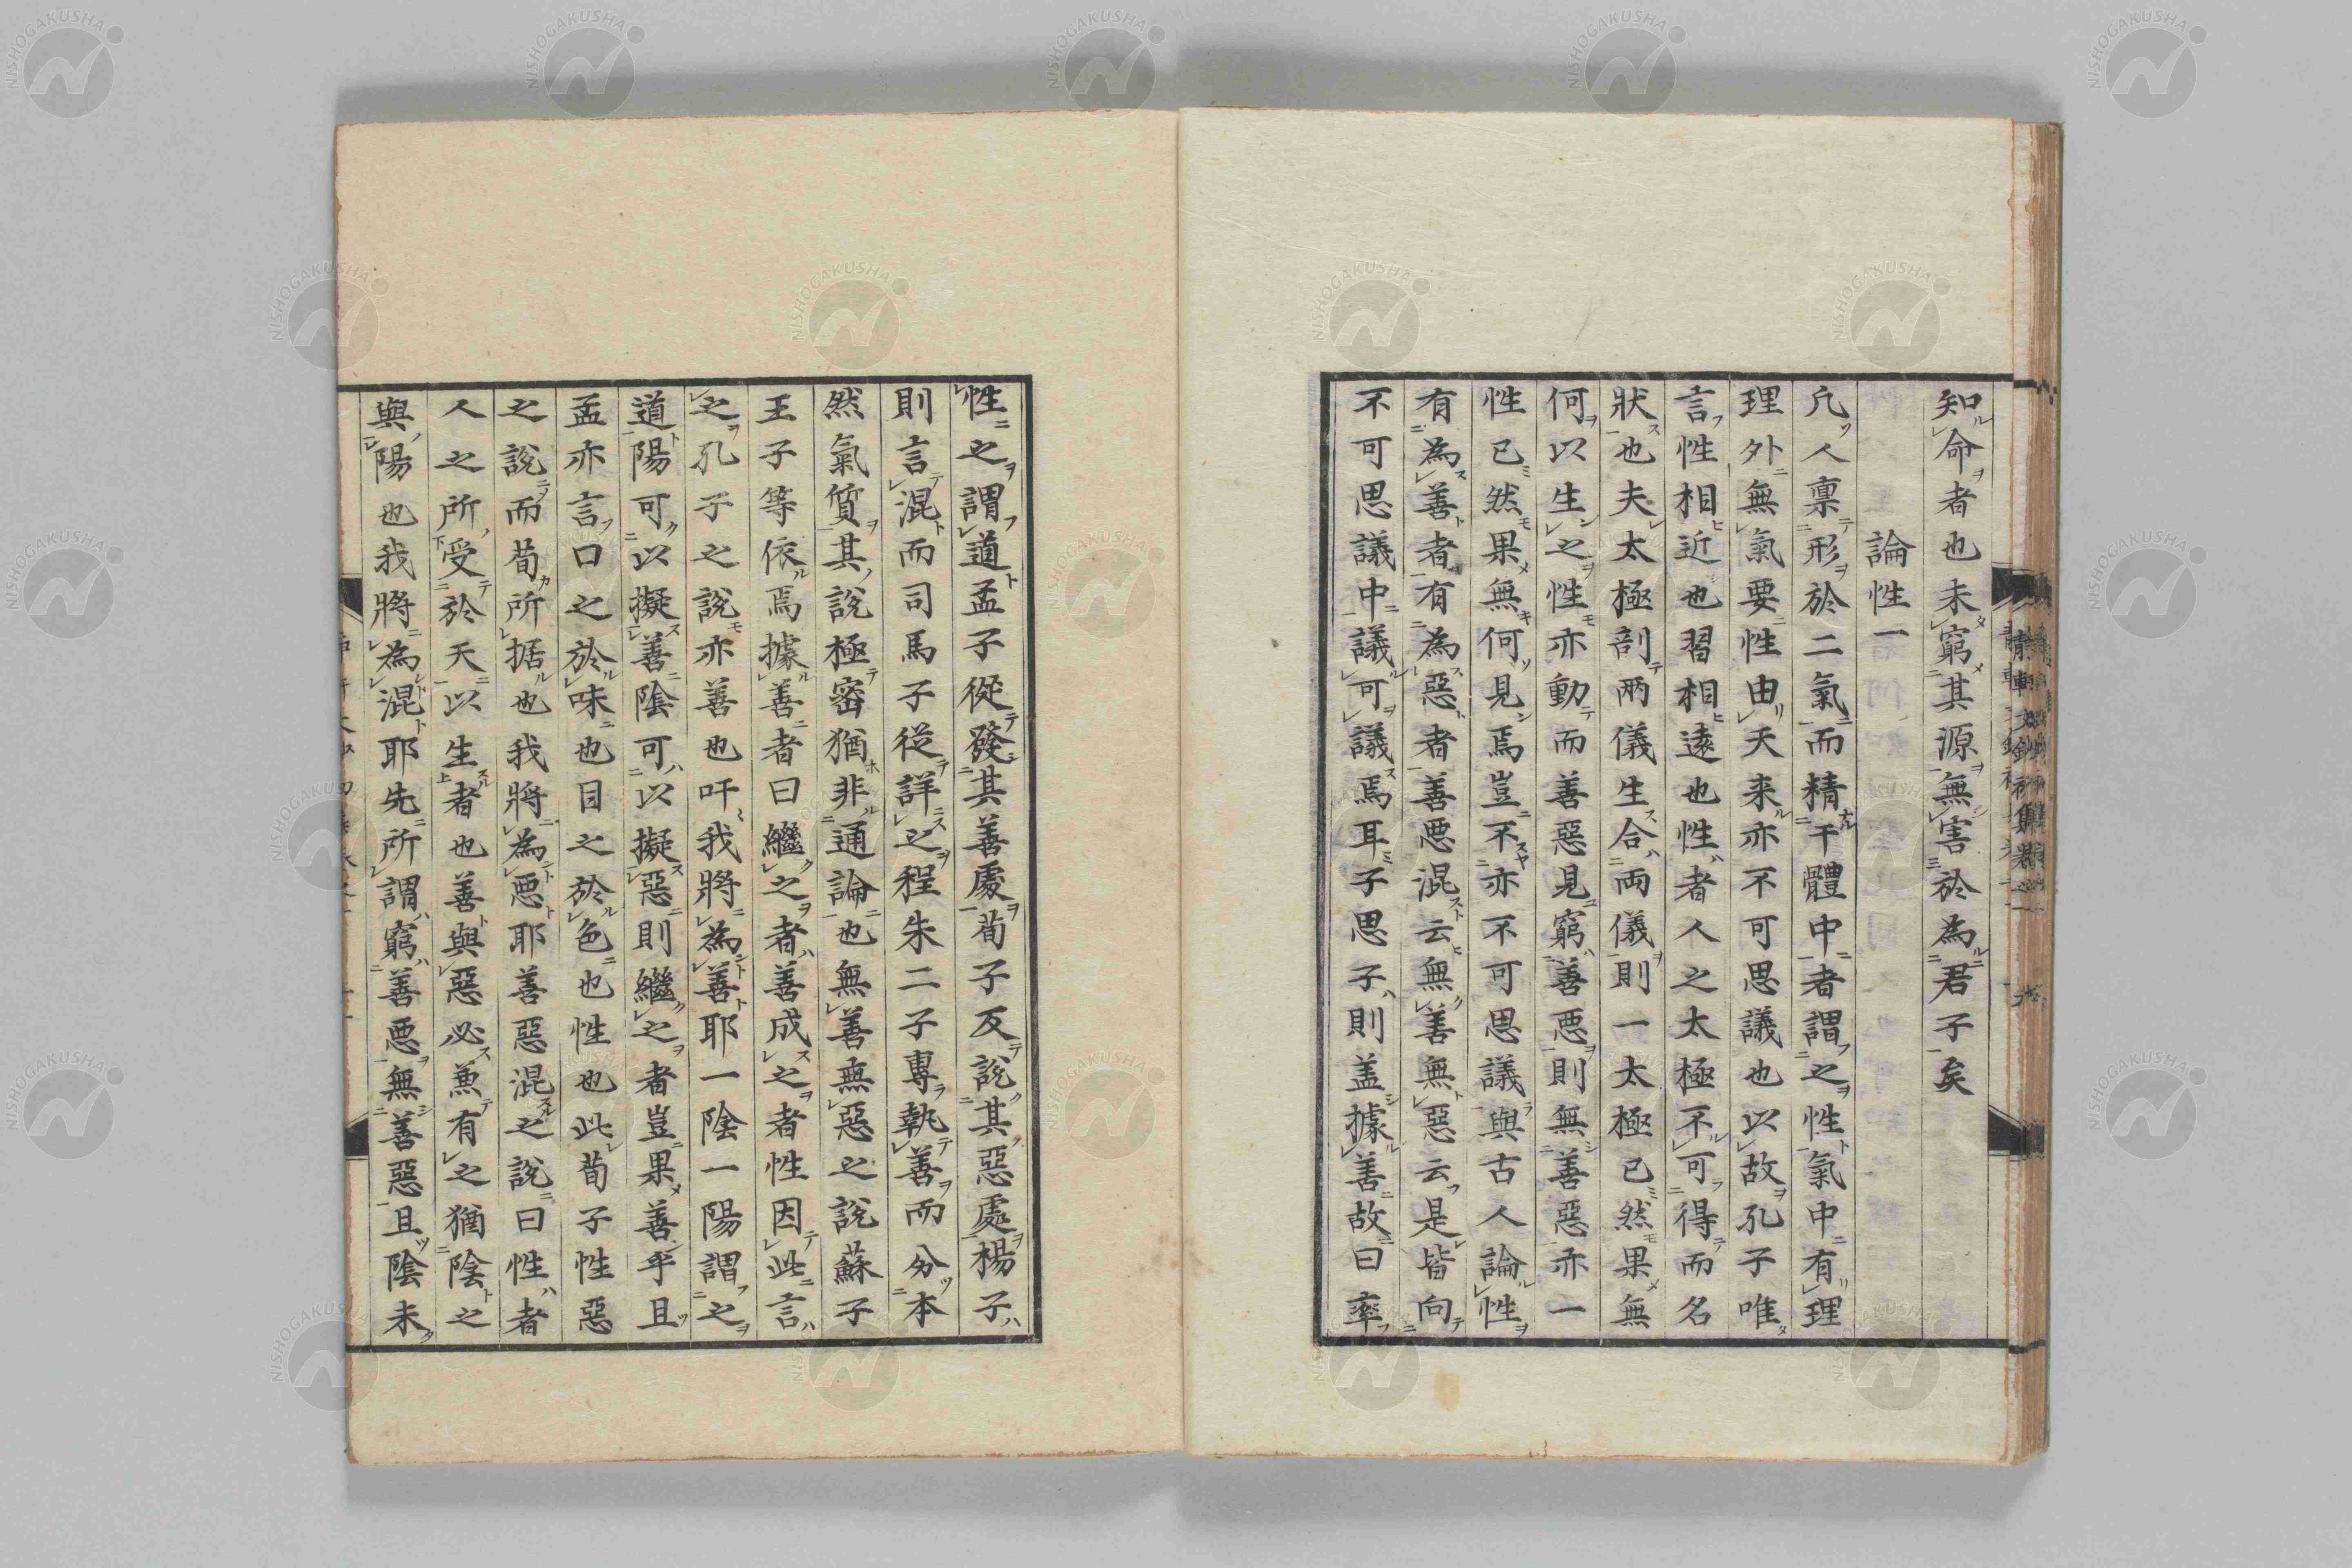 知命者也未窮其源無害於為君子矣
論性一
凢人禀形於二氣而精于體中者謂之性氣中有理
理外無氣要性由天来亦不可思議也以故孔子唯
言性相近也習相遠也性者人之太極不可得而名
狀也夫太極剖両儀生合両儀則一太極已然果無
何以生之性亦動而善惡見窮善悪則無善惡亦一
性已然果無何見焉豈不亦不可思議與古人論性
有為善者有為惡者善悪混云無善無惡云是皆向
不可思議中議可議焉耳子思子則盖據善故曰率
性之謂道孟子從發其善處荀子反說其惡處楊子
則言混而司馬子從詳之程朱二子專執善而分本
然氣質其說極密猶非通論也無善無惡之說蘇子
王子等依焉據善者曰繼之者善成之者性因此言
之孔子之說亦善也吁我將為善耶一陰一陽謂之
道陽可以擬善陰可以擬惡則繼之者豈果善乎且
孟亦言口之於味也目之於色也性也此荀子性惡
之說而荀所据也我將為悪耶善惡混之說曰性者
人之所受於天以生者也善與惡必兼有之猶陰之
與陽也我將為混耶先所謂窮善悪無善惡且陰未
NISHOGAKUSHA